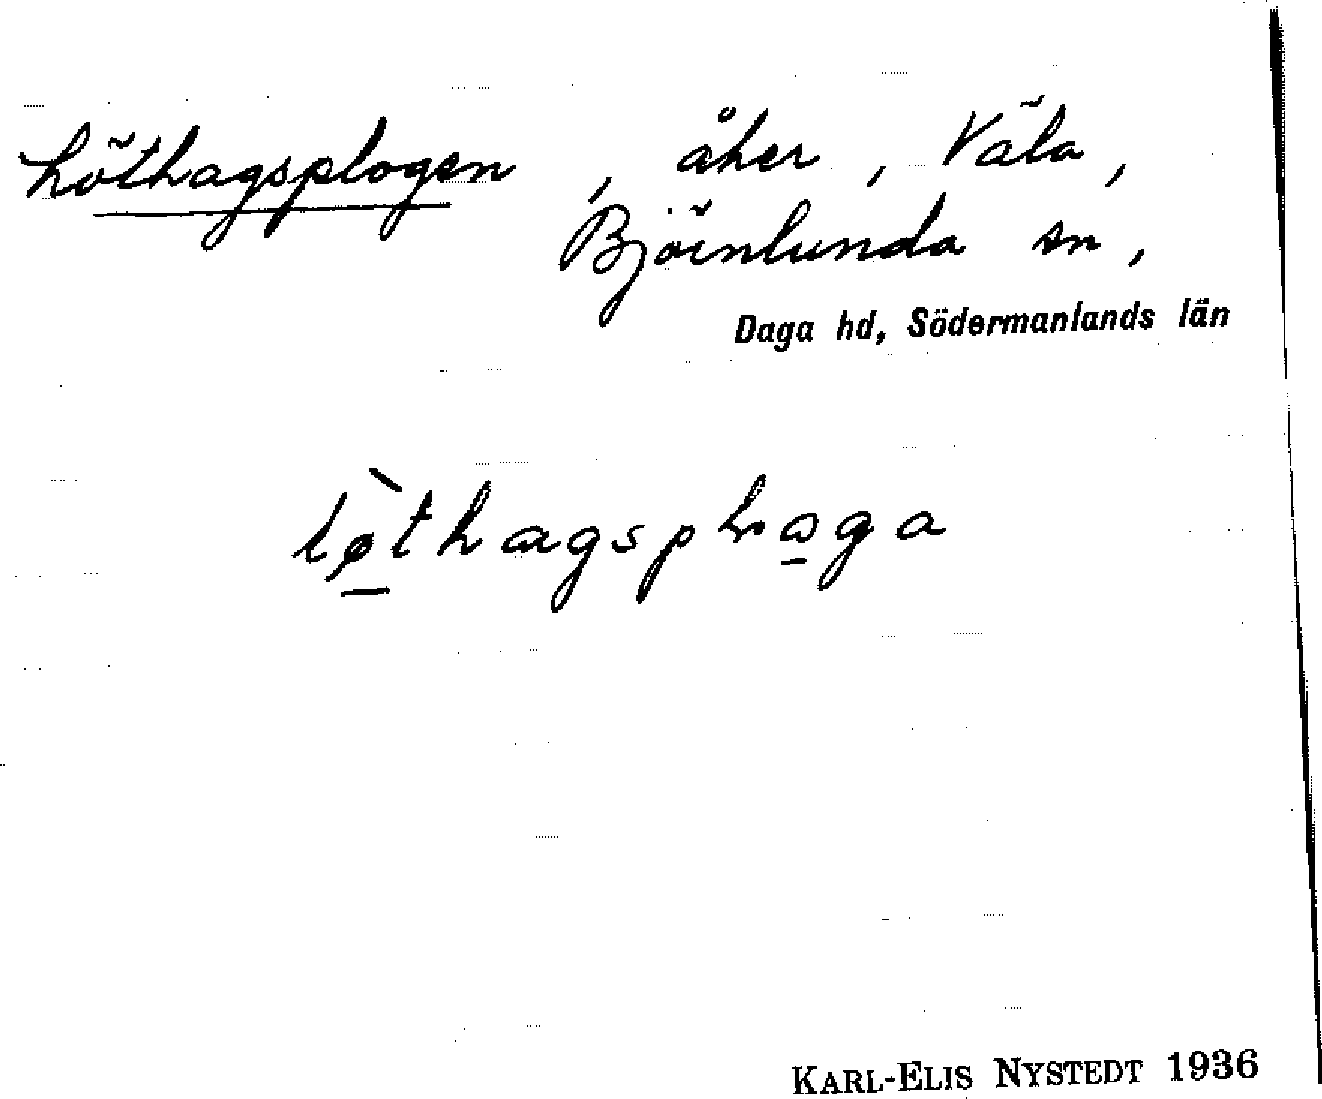 Löthagsplogen, åker, Väla,
Björnlunda sn,
Daga hd, Södermanlands län
lø̀thagsplwaga
KARL-ELIS NYSTEDT 1936